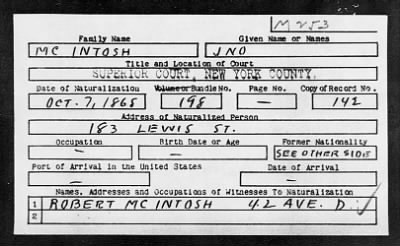 M253
Family Name Given Name or Names
MC INTOSH JNO
Title and Location of Court
SUPERIOR COURT, NEW YORK COUNTY.
Date of Naturalization Volume or Bundle No. Page No. Copy of Record No.
OCT. 7, 1868 198 — 142
Address of Naturalized Person
183 LEWIS ST.
Occupation Birth Date or Age Former Nationality
— — SEE OTHER SIDE
Port of Arrival in the United States Date of Arrival
— —
Names, Addresses and Occupations of Witnesses To Naturalization
1 ROBERT MC INTOSH 42 AVE. D
2